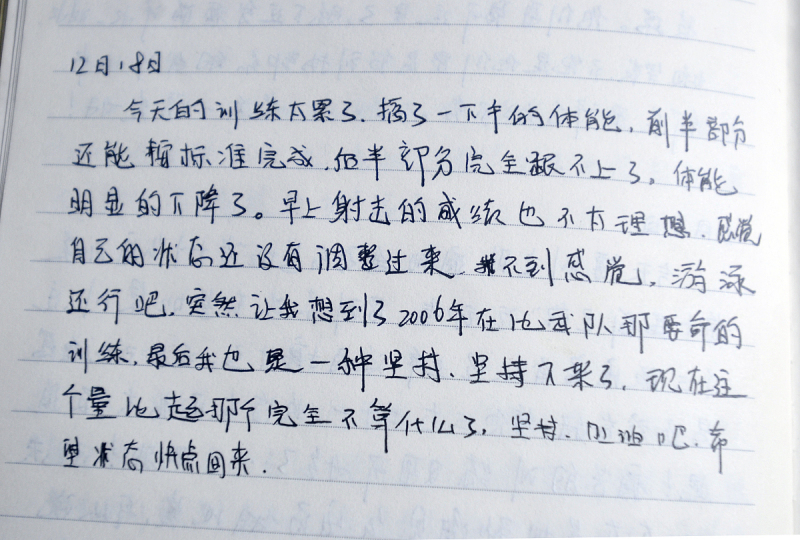 12月18日
今天的训练太累了.搞了一下午的体能,前半部分
还能按标准完成,后半部分完全跟不上了。体能
明显的下降了。早上射击的成绩也不太理想.感觉
自己的状态还没有调整过来.找不到感觉.游泳
还行吧.突然让我想到了2006年在比武队那要命的
训练.最后我也是一种坚持.坚持下来了.现在这
个量比起那个完全不算什么了.坚持.加油吧.希
望状态快点回来.